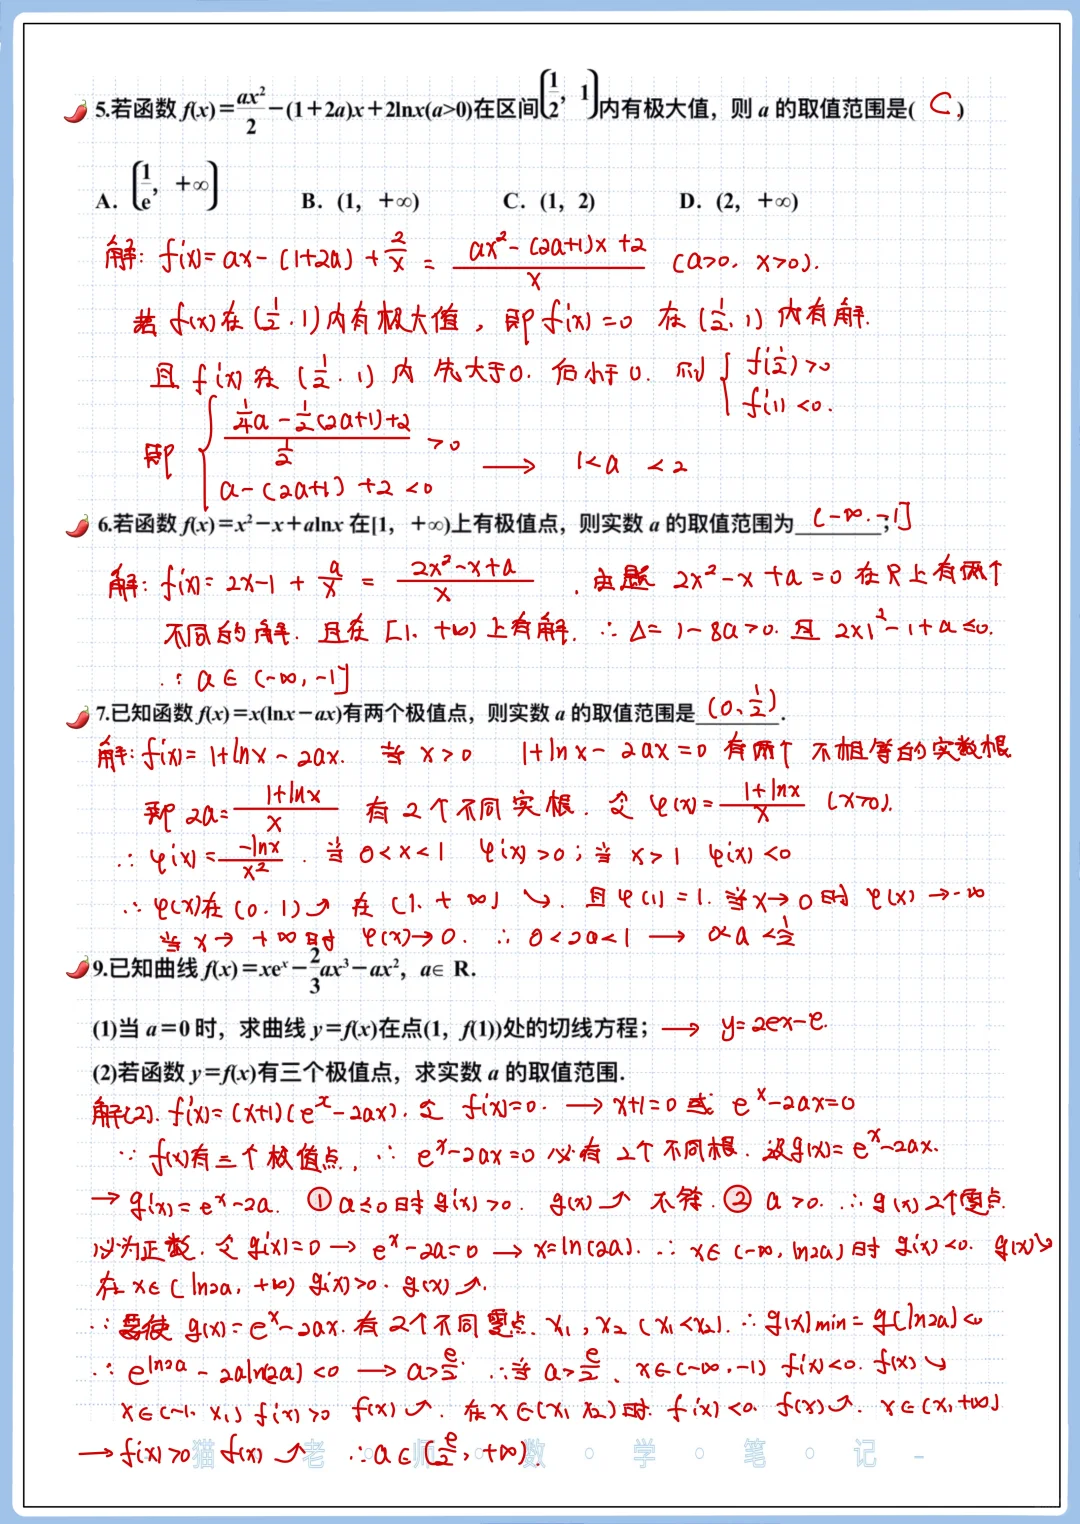 5.若函数 f(x)=ax²/2-(1+2a)x+2lnx(a>0)在区间(1/2, 1)内有极大值，则 a 的取值范围是( C )
A. (1/e, +∞) B. (1, +∞) C. (1, 2) D. (2, +∞)
解: f'(x)= ax-(1+2a)+2/x = (ax²-(2a+1)x+2)/x (a>0, x>0).
若 f(x)在(1/2, 1)内有极大值, 即 f'(x)=0 在(1/2, 1)内有解.
且 f'(x)在(1/2, 1)内 先大于0. 后小于0. 则 { f'(1/2)>0
f'(1)<0.
即 { (1/4a-1/2(2a+1)+2)/(1/2) >0
a-(2a+1)+2<0 → 1<a<2
6.若函数 f(x)=x²-x+alnx 在[1, +∞)上有极值点，则实数 a 的取值范围为 (-∞, -1] ;
解: f'(x)= 2x-1+a/x = (2x²-x+a)/x . 由题 2x²-x+a=0 在R上有两个
不同的解. 且在 [1, +∞)上有解. ∴ Δ= 1-8a>0. 且 2x1²-1+a≤0.
∴ a∈(-∞, -1]
7.已知函数 f(x)=x(lnx-ax)有两个极值点，则实数 a 的取值范围是 (0, 1/2) .
解: f'(x)= 1+lnx-2ax. 当 x>0 1+lnx-2ax=0 有两个 不相等的实数根
即 2a= (1+lnx)/x 有2个不同实根. 令 φ(x)= (1+lnx)/x (x>0).
∴ φ'(x)= -lnx/x² . 当 0<x<1 φ'(x)>0; 当 x>1 φ'(x)<0
∴ φ(x)在(0, 1)↗ 在 (1, +∞) ↘. 且 φ(1)=1. 当x→0时 φ(x)→-∞
当 x→+∞时 φ(x)→0. ∴ 0<2a<1 → 0<a<1/2
9.已知曲线 f(x)=xeˣ-2/3ax³-ax²，a∈ R.
(1)当 a=0 时，求曲线 y=f(x)在点(1，f(1))处的切线方程； → y=2ex-e.
(2)若函数 y=f(x)有三个极值点，求实数 a 的取值范围.
解(2). f'(x)=(x+1)(eˣ-2ax). 令 f'(x)=0. → x+1=0 或 eˣ-2ax=0
∵ f(x)有三个极值点, ∴ eˣ-2ax=0 必有 2个不同根. 设g(x)= eˣ-2ax.
→ g'(x)= eˣ-2a. ① a≤0时 g'(x)>0. g(x)↗ 不符. ② a>0. ∴ g(x)2个零点
必为正数. 令 g'(x)=0 → eˣ-2a=0 → x=ln(2a). ∴ x∈(-∞, ln2a)时 g'(x)<0. g(x)↘
在 x∈(ln2a, +∞) g'(x)>0. g(x)↗.
∴ 要使 g(x)= eˣ-2ax. 有2个不同零点. x1, x2 (x1<x2). ∴ g(x)min = g(ln2a)<0
∴ e^ln2a - 2aln(2a)<0 → a>e/2. ∴ 当 a>e/2 , x∈(-∞, -1) f'(x)<0. f(x)↘
x∈(-1, x1) f'(x)>0 f(x)↗. 在 x∈(x1 x2)时 f'(x)<0. f(x)↗. x∈(x1, +∞)
→ f'(x)>0 f(x)↗ ∴ a∈(e/2, +∞).
猫·老·师·数·学·笔·记-